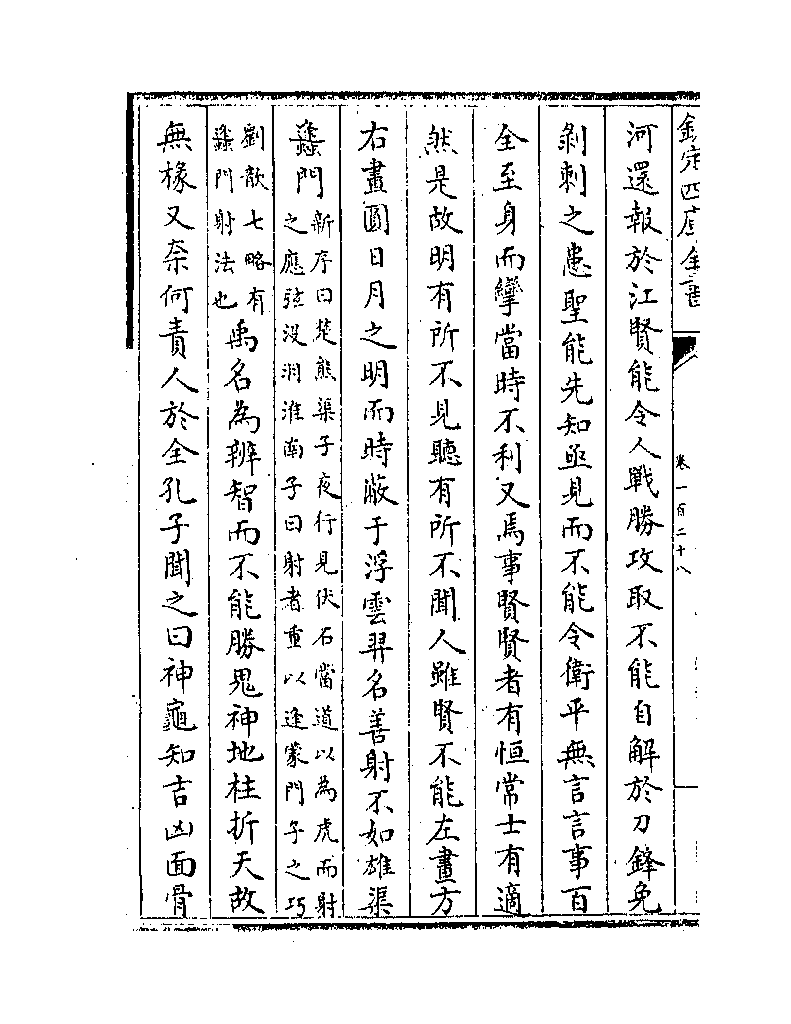 欽定四庫全書
卷一百二十八
河還報於江賢能令人戰勝攻取不能自解於刀鋒免
剝刺之患聖能先知亟見而不能令衛平無言言事百
全至身而攣當時不利又焉事賢賢者有恒常士有適
然是故明有所不見聽有所不聞人雖賢不能左畫方
右畫圓日月之明而時蔽于浮雲羿名善射不如雄渠
蠭門新序曰楚熊渠子夜行見伏石當道以為虎而射
之應弦没羽淮南子曰射者重以逢蒙門子之巧
劉歆七略有
蠭門射法也
禹名為辨智而不能勝鬼神地柱折天故
無椽又奈何責人於全孔子聞之曰神龜知吉凶而骨